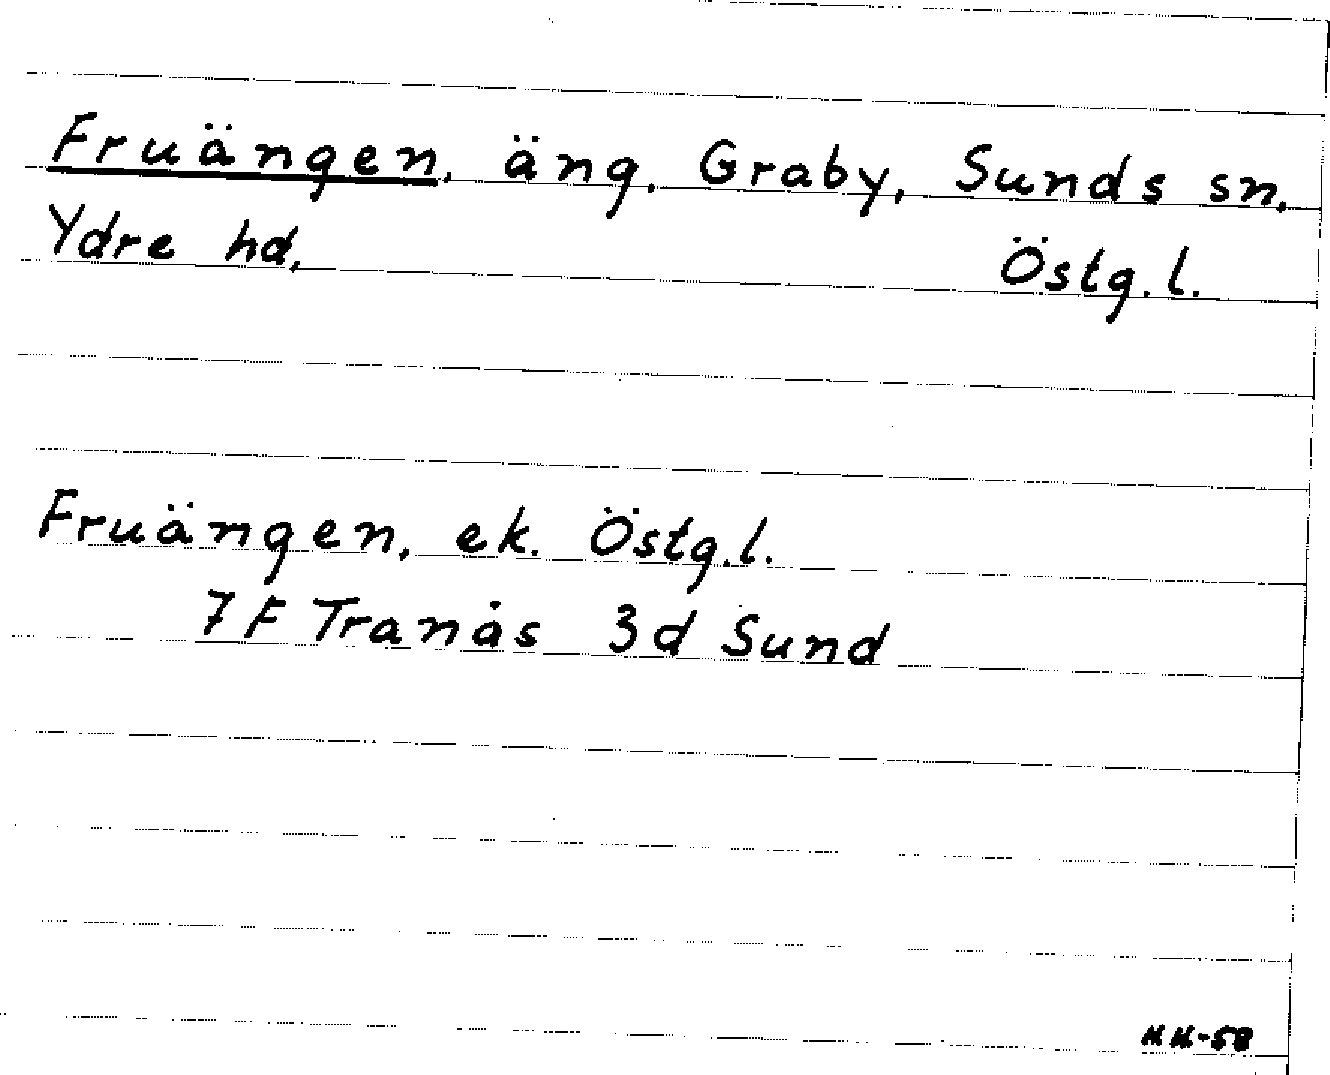 Fruängen, äng, Graby, Sunds sn,
Ydre hd, Östg.l.
Fruängen, ek. Östg.l.
7 F Tranås 3d Sund